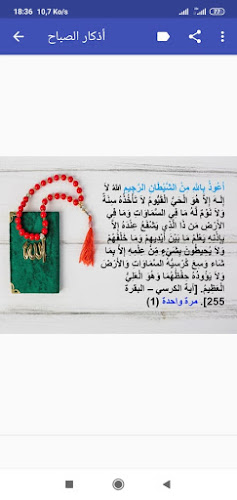 18:36 10,7 Ko/s
أذكار الصباح
أعُوذُ بِاللهِ مِنْ الشَّيْطَانِ الرَّجِيمِ اللهُ لاَ
إِلَـهَ إِلاَّ هُوَ الْحَيُّ الْقَيُّومُ لاَ تَأْخُذُهُ سِنَةٌ
وَلاَ نَوْمٌ لَّهُ مَا فِي السَّمَاوَاتِ وَمَا فِي
الأَرْضِ مَن ذَا الَّذِي يَشْفَعُ عِنْدَهُ إِلاَّ
بِإِذْنِهِ يَعْلَمُ مَا بَيْنَ أَيْدِيهِمْ وَمَا خَلْفَهُمْ
وَلاَ يُحِيطُونَ بِشَيْءٍ مِّنْ عِلْمِهِ إِلاَّ بِمَا
شَاء وَسِعَ كُرْسِيُّهُ السَّمَاوَاتِ وَالأَرْضَ
وَلاَ يَؤُودُهُ حِفْظُهُمَا وَهُوَ الْعَلِيُّ
الْعَظِيمُ. [آية الكرسي – البقرة
255]. مرة واحدة (1)